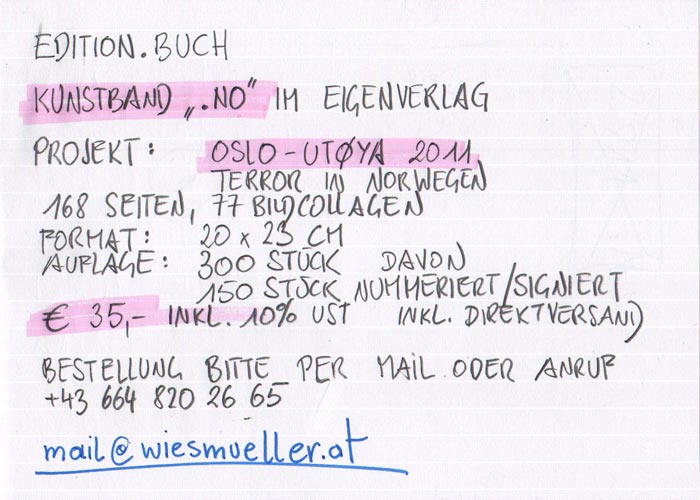 EDITION.BUCH
KUNSTBAND „.NO" IM EIGENVERLAG
PROJEKT: OSLO-UTØYA 2011
TERROR IN NORWEGEN
168 SEITEN, 77 BILDCOLLAGEN
FORMAT: 20 x 23 CM
AUFLAGE: 300 STÜCK DAVON
150 STÜCK NUMMERIERT/SIGNIERT
€ 35,- INKL. 10% UST INKL. DIREKTVERSAND
BESTELLUNG BITTE PER MAIL ODER ANRUF
+43 664 820 26 65
mail@wiesmueller.at